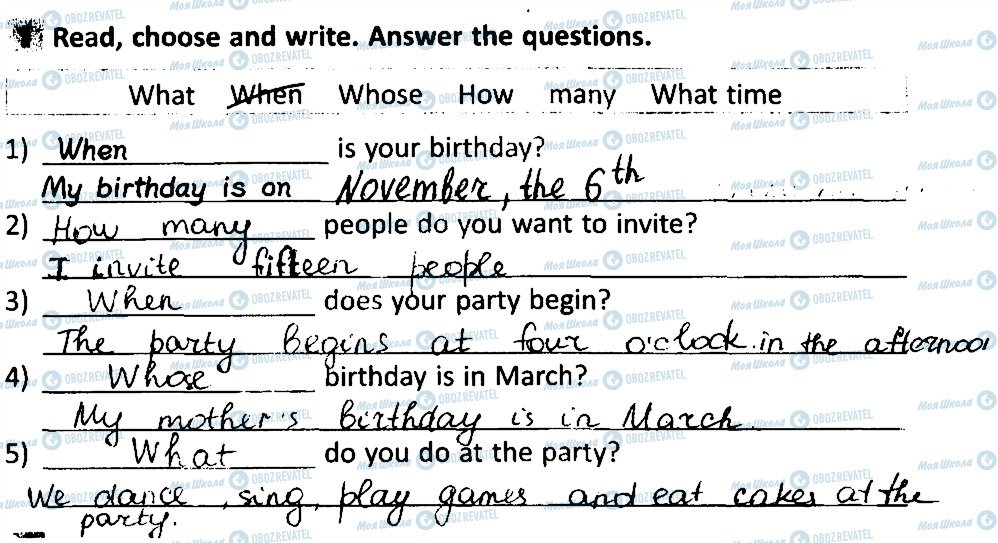 Read, choose and write. Answer the questions.
What When Whose How many What time
1) When is your birthday?
My birthday is on November, the 6th
2) How many people do you want to invite?
I invite fifteen people
3) When does your party begin?
The party begins at four o'clock in the afternoon
4) Whose birthday is in March?
My mother's birthday is in March.
5) What do you do at the party?
We dance, sing, play games and eat cakes at the
party.